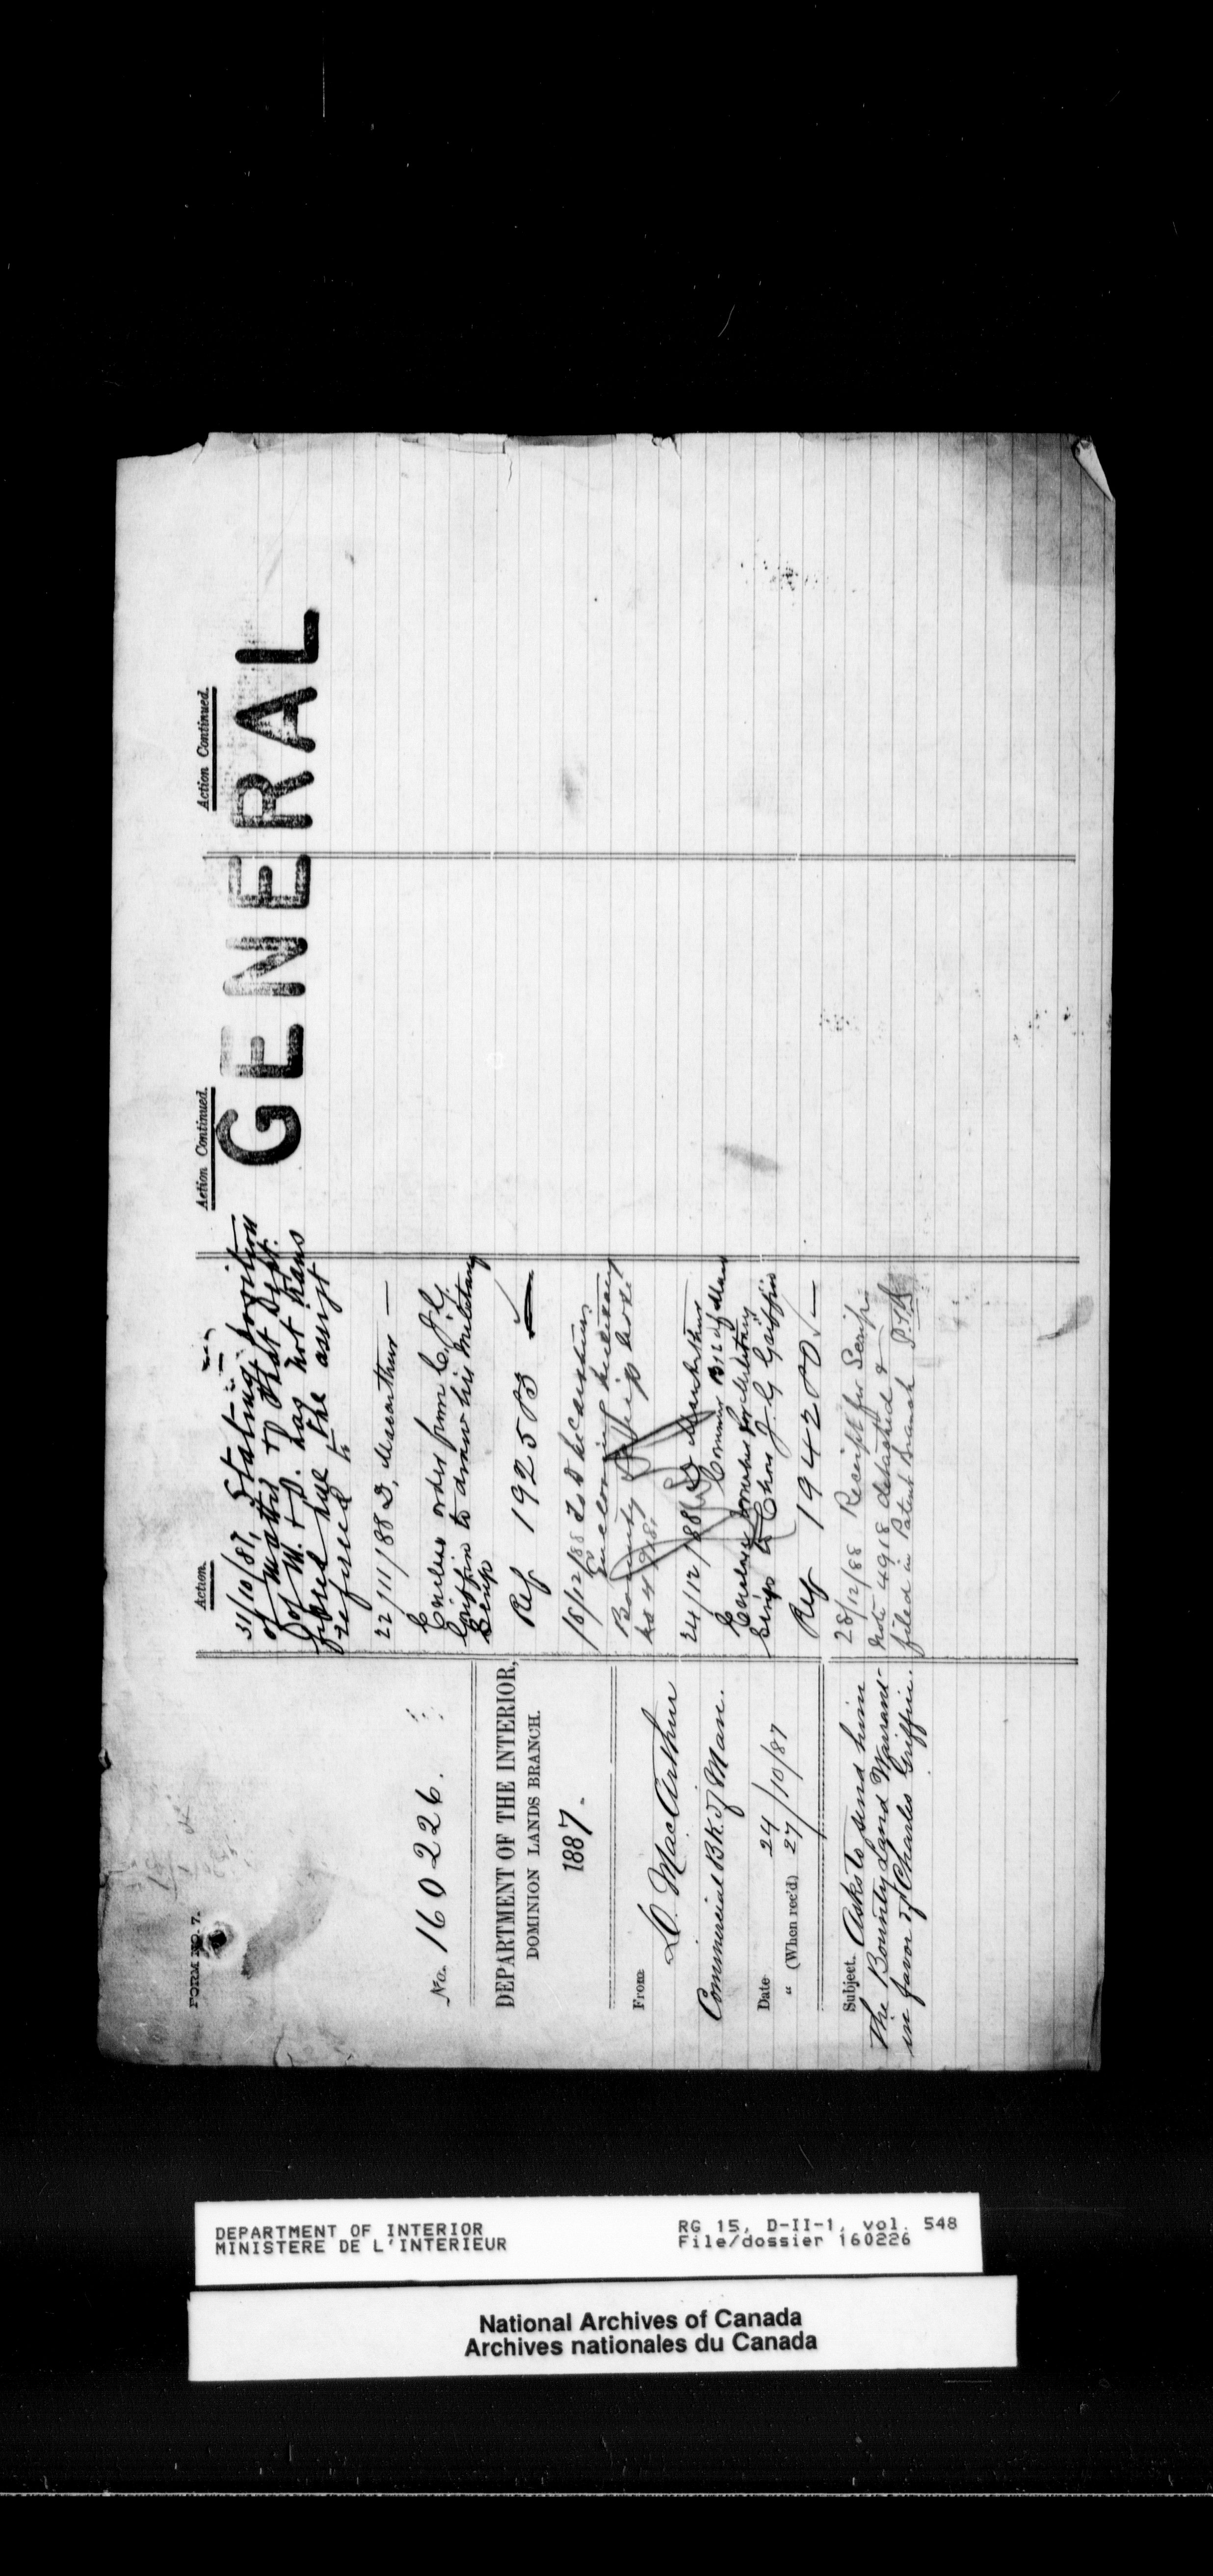 FORM NO. 7.
No. 160226.
DEPARTMENT OF THE INTERIOR,
DOMINION LANDS BRANCH.
1887.
From
D. MacArthur
Commercial Bk of Man.
Date 24
" (When rec'd) 27/10/87
Subject. Asks to send him
the Bounty Land Warrant
in favor of Charles Griffin.
Action.
31/10/87, Stating position
of matter & that Dept.
of M. & D. has not trans
ferred the assigt
referred to
22/11/88 D, Macarthur —
Encloses order from C. J. G.
Griffin to draw his Military
Scrip
Ref 192580 ✓
18/12/88 To D McArthur
Enclosing military
Bounty Scrip
No 4918.
24/12/88 D MacArthur
Commer Bk of Man
Scrip to Chas J. G Griffin
Ref 194280 ✓—
28/12/88 Receipt for Scrip
Note 4918 detached &
filed in Patent branch
Action Continued.
Action Continued.
GENERAL
DEPARTMENT OF INTERIOR
MINISTERE DE L'INTERIEUR
RG 15, D-II-1, vol. 548
File/dossier 160226
National Archives of Canada
Archives nationales du Canada